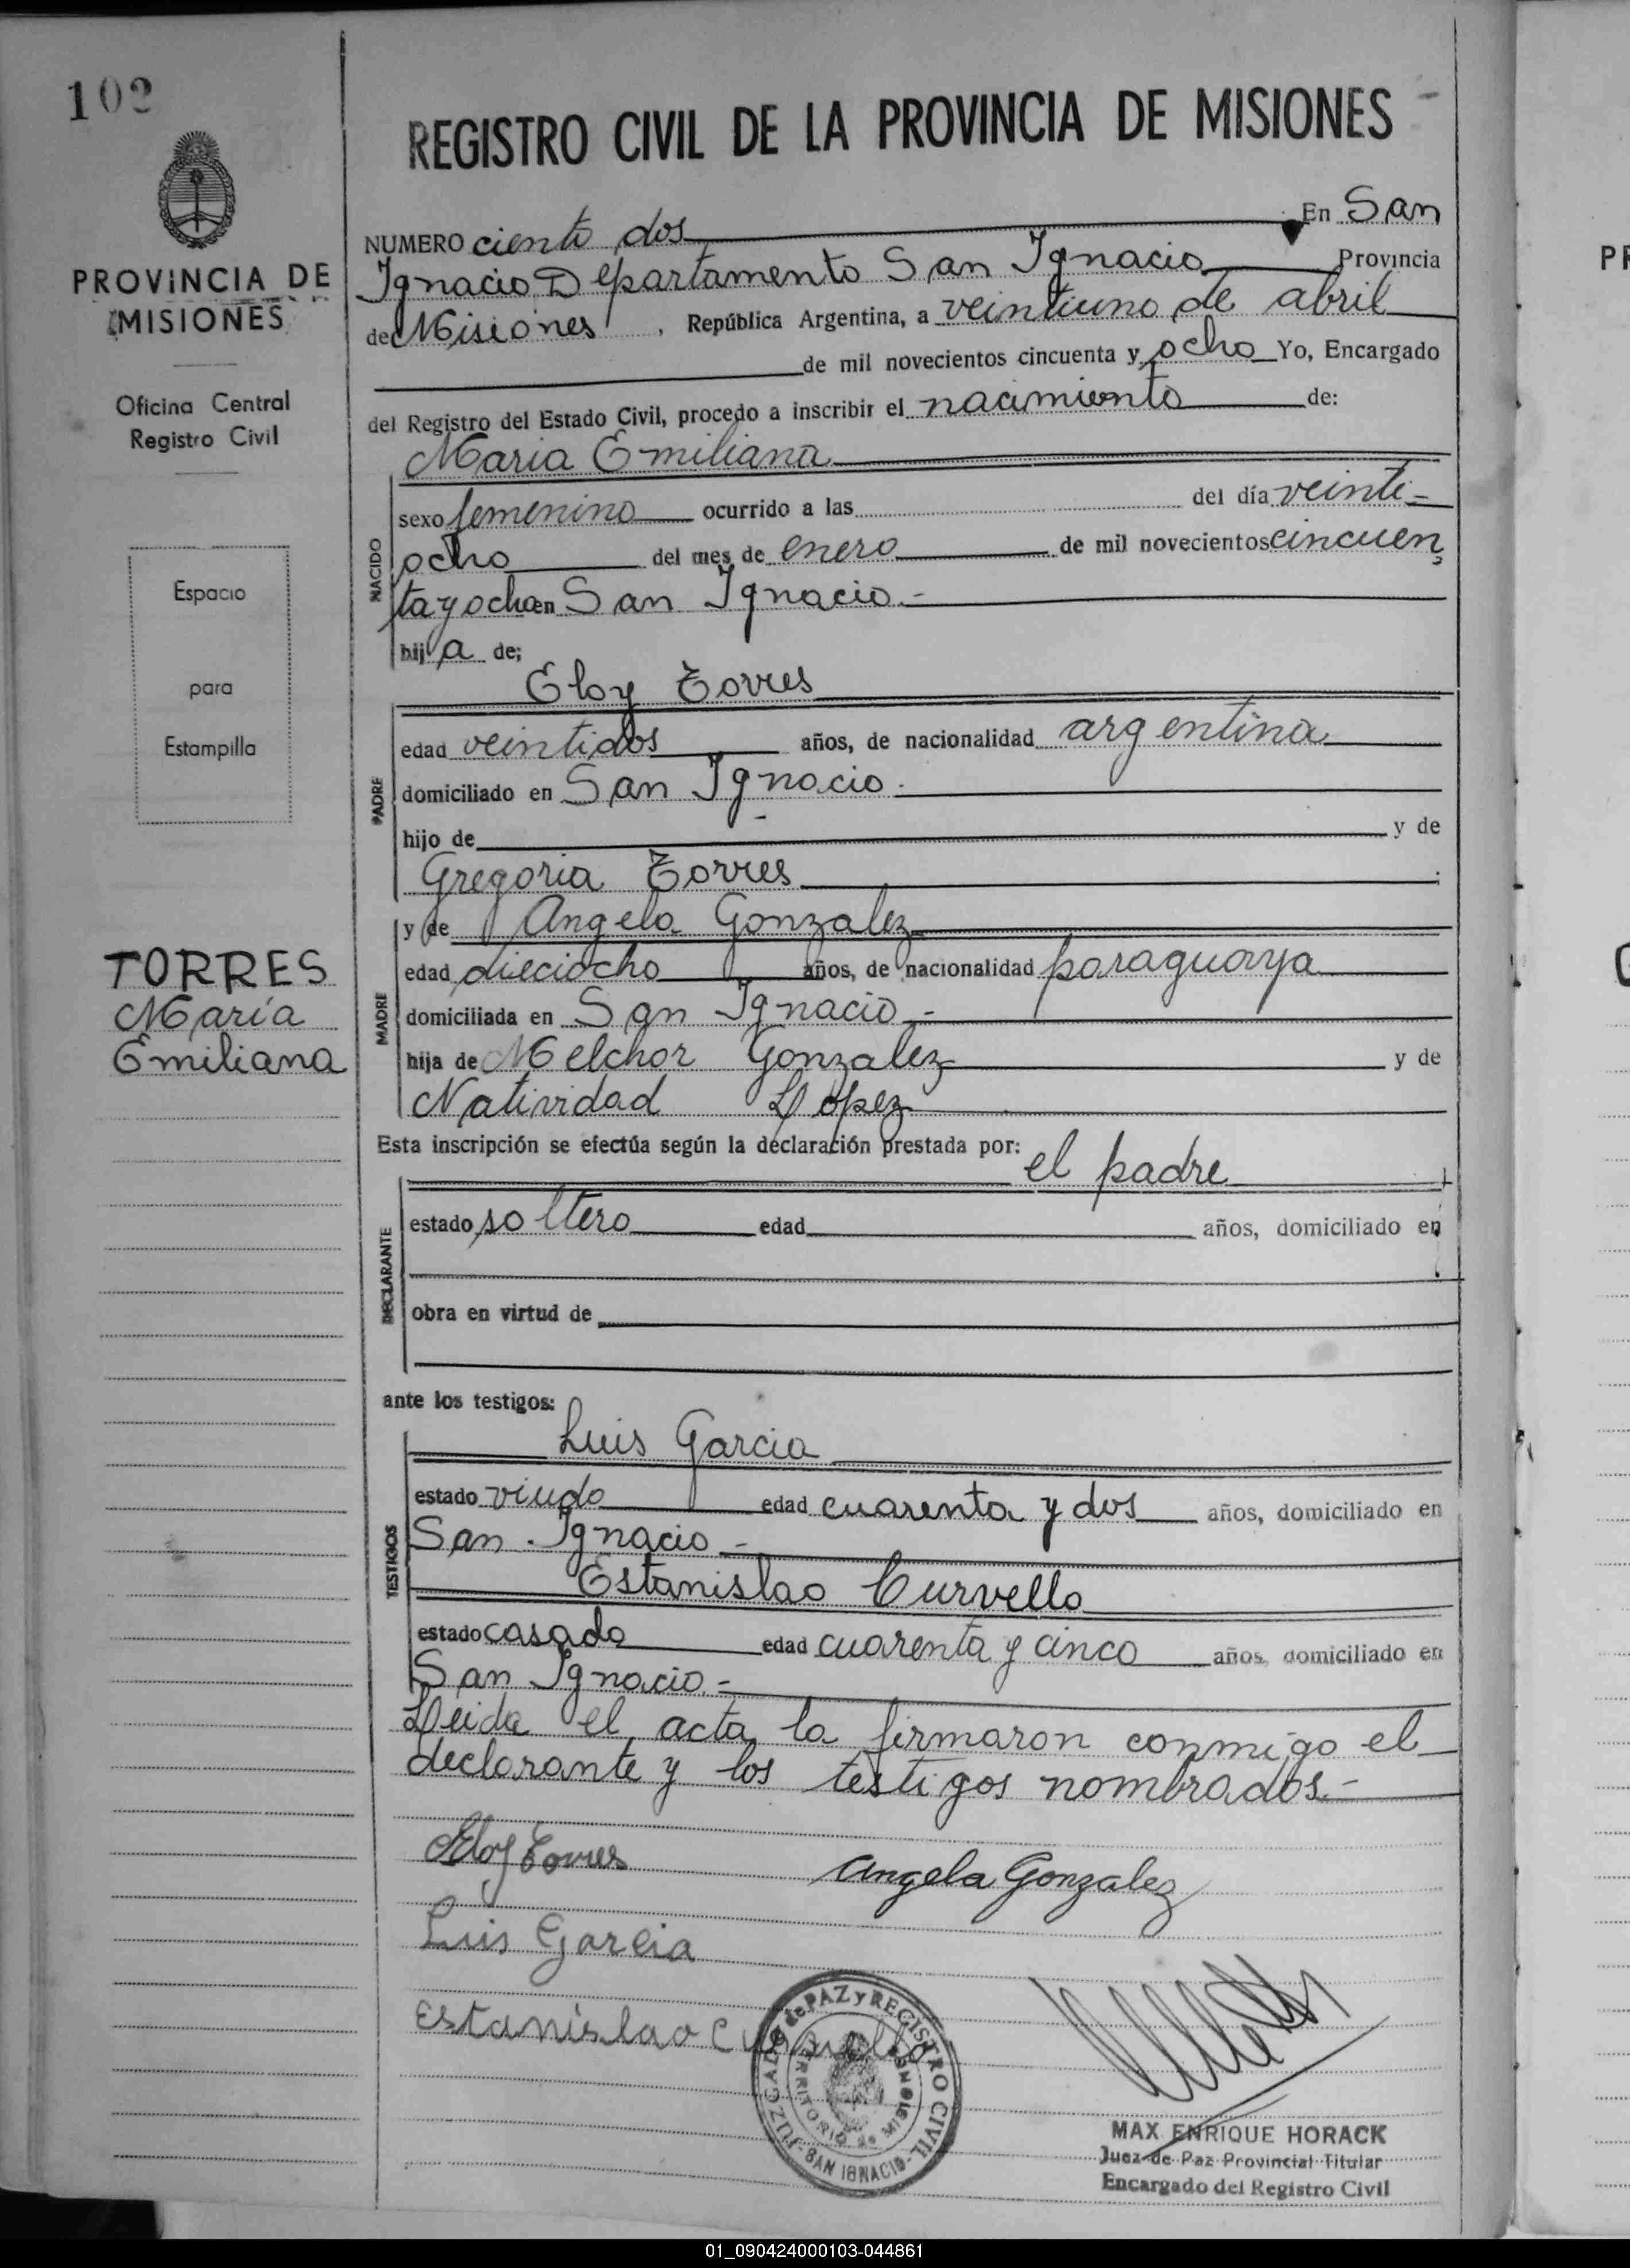 102
PROVINCIA DE
MISIONES
Oficina Central
Registro Civil
Espacio
para
Estampilla
TORRES
María
Emiliana
REGISTRO CIVIL DE LA PROVINCIA DE MISIONES
NUMERO ciento dos En San
Ignacio Departamento San Ignacio Provincia
de Misiones, República Argentina, a veintiuno de abril
de mil novecientos cincuenta y ocho Yo, Encargado
del Registro del Estado Civil, procedo a inscribir el nacimiento de:
Maria Emiliana
NACIDO
sexo femenino ocurrido a las del día veinti-
ocho del mes de enero de mil novecientos cincuen
ta y ocho en San Ignacio.-
hija de;
Eloy Torres
PADRE
edad veintidos años, de nacionalidad argentina
domiciliado en San Ignacio.
hijo de - y de
Gregoria Torres ;
y de Angela Gonzalez
MADRE
edad dieciocho años, de nacionalidad paraguaya
domiciliada en San Ignacio.-
hija de Melchor Gonzalez y de
Natividad López
Esta inscripción se efectúa según la declaración prestada por:
el padre
DECLARANTE
estado soltero edad años, domiciliado en
obra en virtud de
ante los testigos:
Luis Garcia
TESTIGOS
estado viudo edad cuarenta y dos años, domiciliado en
San Ignacio.-
Estanislao Curvello
estado casado edad cuarenta y cinco años, domiciliado en
San Ignacio.-
Leida el acta la firmaron conmigo el
declarante y los testigos nombrados.-
Eloy Torres
Angela Gonzalez
Luis Garcia
Estanislao Curvello
JUZGADO de PAZ y REGISTRO CIVIL
TERRITORIO de MISIONES
-SAN IGNACIO-
MAX ENRIQUE HORACK
Juez de Paz Provincial Titular
Encargado del Registro Civil
01_090424000103-044861